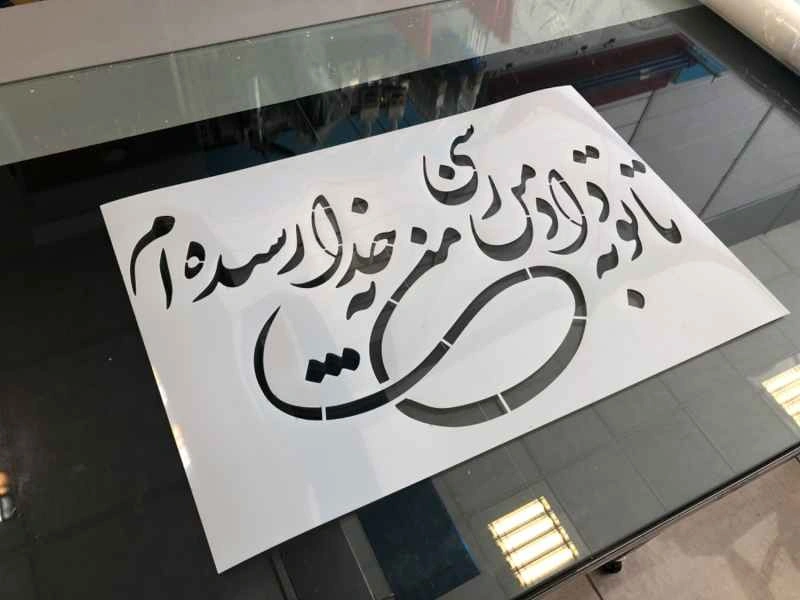 تا تو به داد من رسی
من به خدا رسیده ام